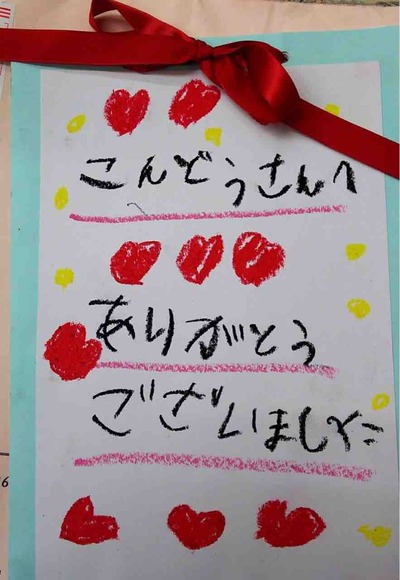 こんどうさんへ
ありがとう
ございました